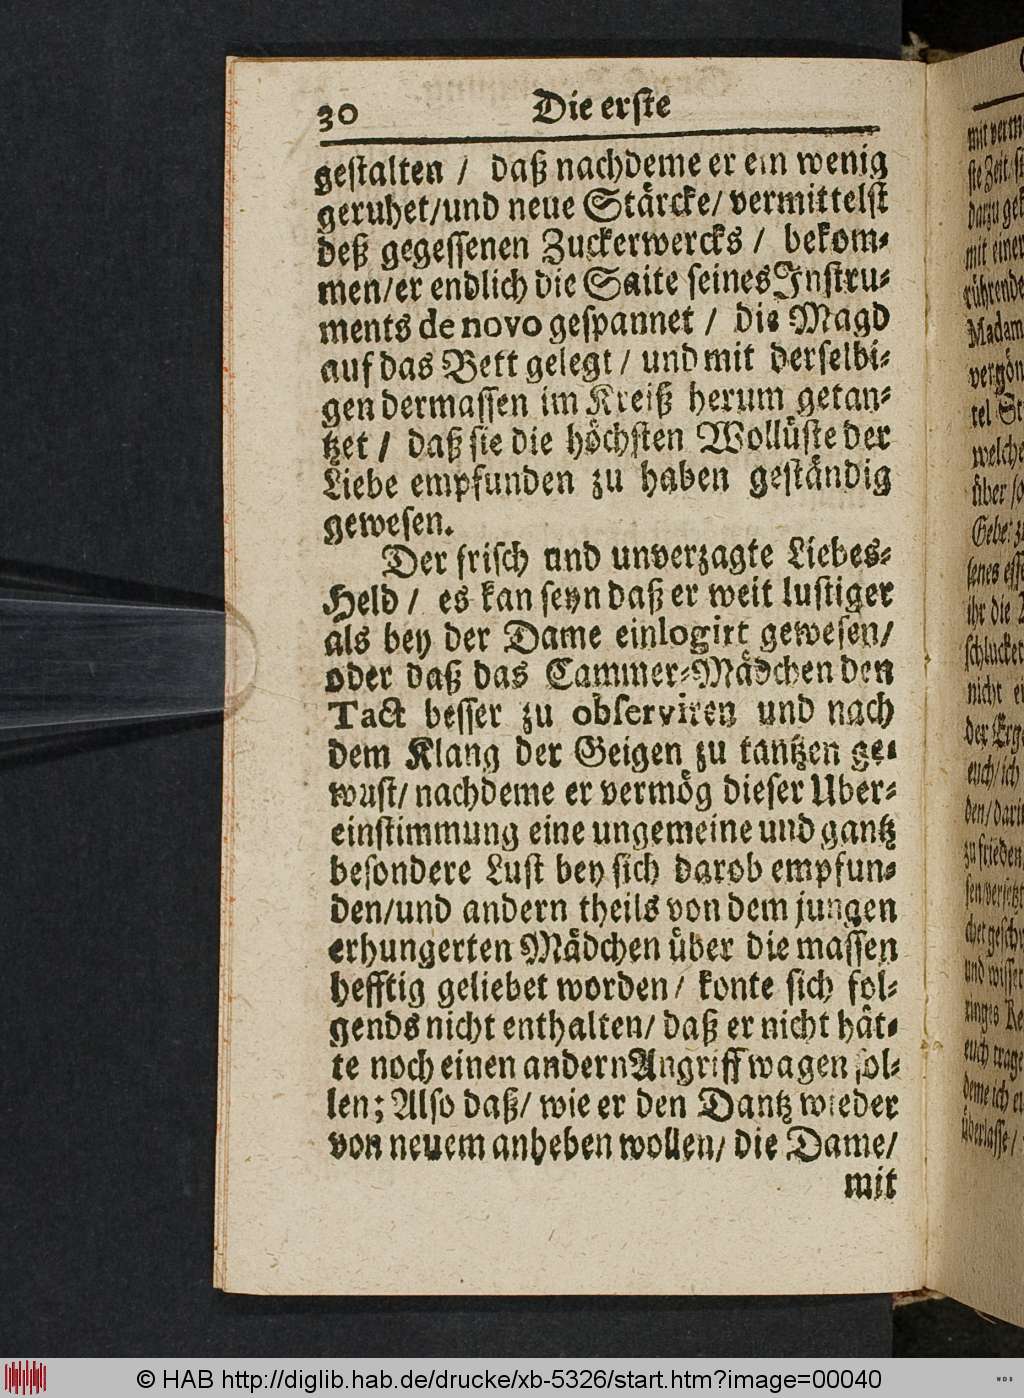 30 Die erste
gestalten / daß nachdeme er ein wenig
geruhet/und neue Stärcke/ vermittelst
deß gegessenen Zuckerwercks / bekom-
men/er endlich die Saite seines Instru-
ments de novo gespannet / die Magd
auf das Bett gelegt / und mit derselbi-
gen dermassen im Kreiß herum getan-
tzet / daß sie die höchsten Wollüste der
Liebe empfunden zu haben geständig
gewesen.
Der frisch und unverzagte Liebes-
Held / es kan seyn daß er weit lustiger
als bey der Dame einlogirt gewesen/
oder daß das Cammer-Mädchen den
Tact besser zu observiren und nach
dem Klang der Geigen zu tantzen ge-
wust/ nachdeme er vermög dieser Uber-
einstimmung eine ungemeine und gantz
besondere Lust bey sich darob empfun-
den/und andern theils von dem jungen
erhungerten Mädchen über die massen
hefftig geliebet worden/ konte sich fol-
gends nicht enthalten/ daß er nicht hät-
te noch einen andern Angriff wagen sol-
len; Also daß/ wie er den Dantz wieder
von neuem anheben wollen/ die Dame/
mit
mit
sie Zeit
mit einer
Madam
vergön
welche
über so
ihr die
nicht
euch/ich
zu frieden
und wisser
euch trage
deme ich
überlasse/
© HAB http://diglib.hab.de/drucke/xb-5326/start.htm?image=00040